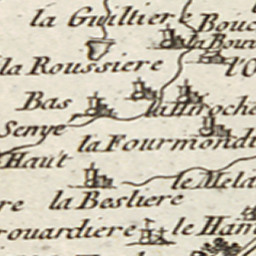 la Guiltiere Bouc
la Bouv
la Roussiere l'O
Bas la Hiroche
Senye la Fourmondi
Haut
le Mela
re la Besliere
rouardiere le Ham